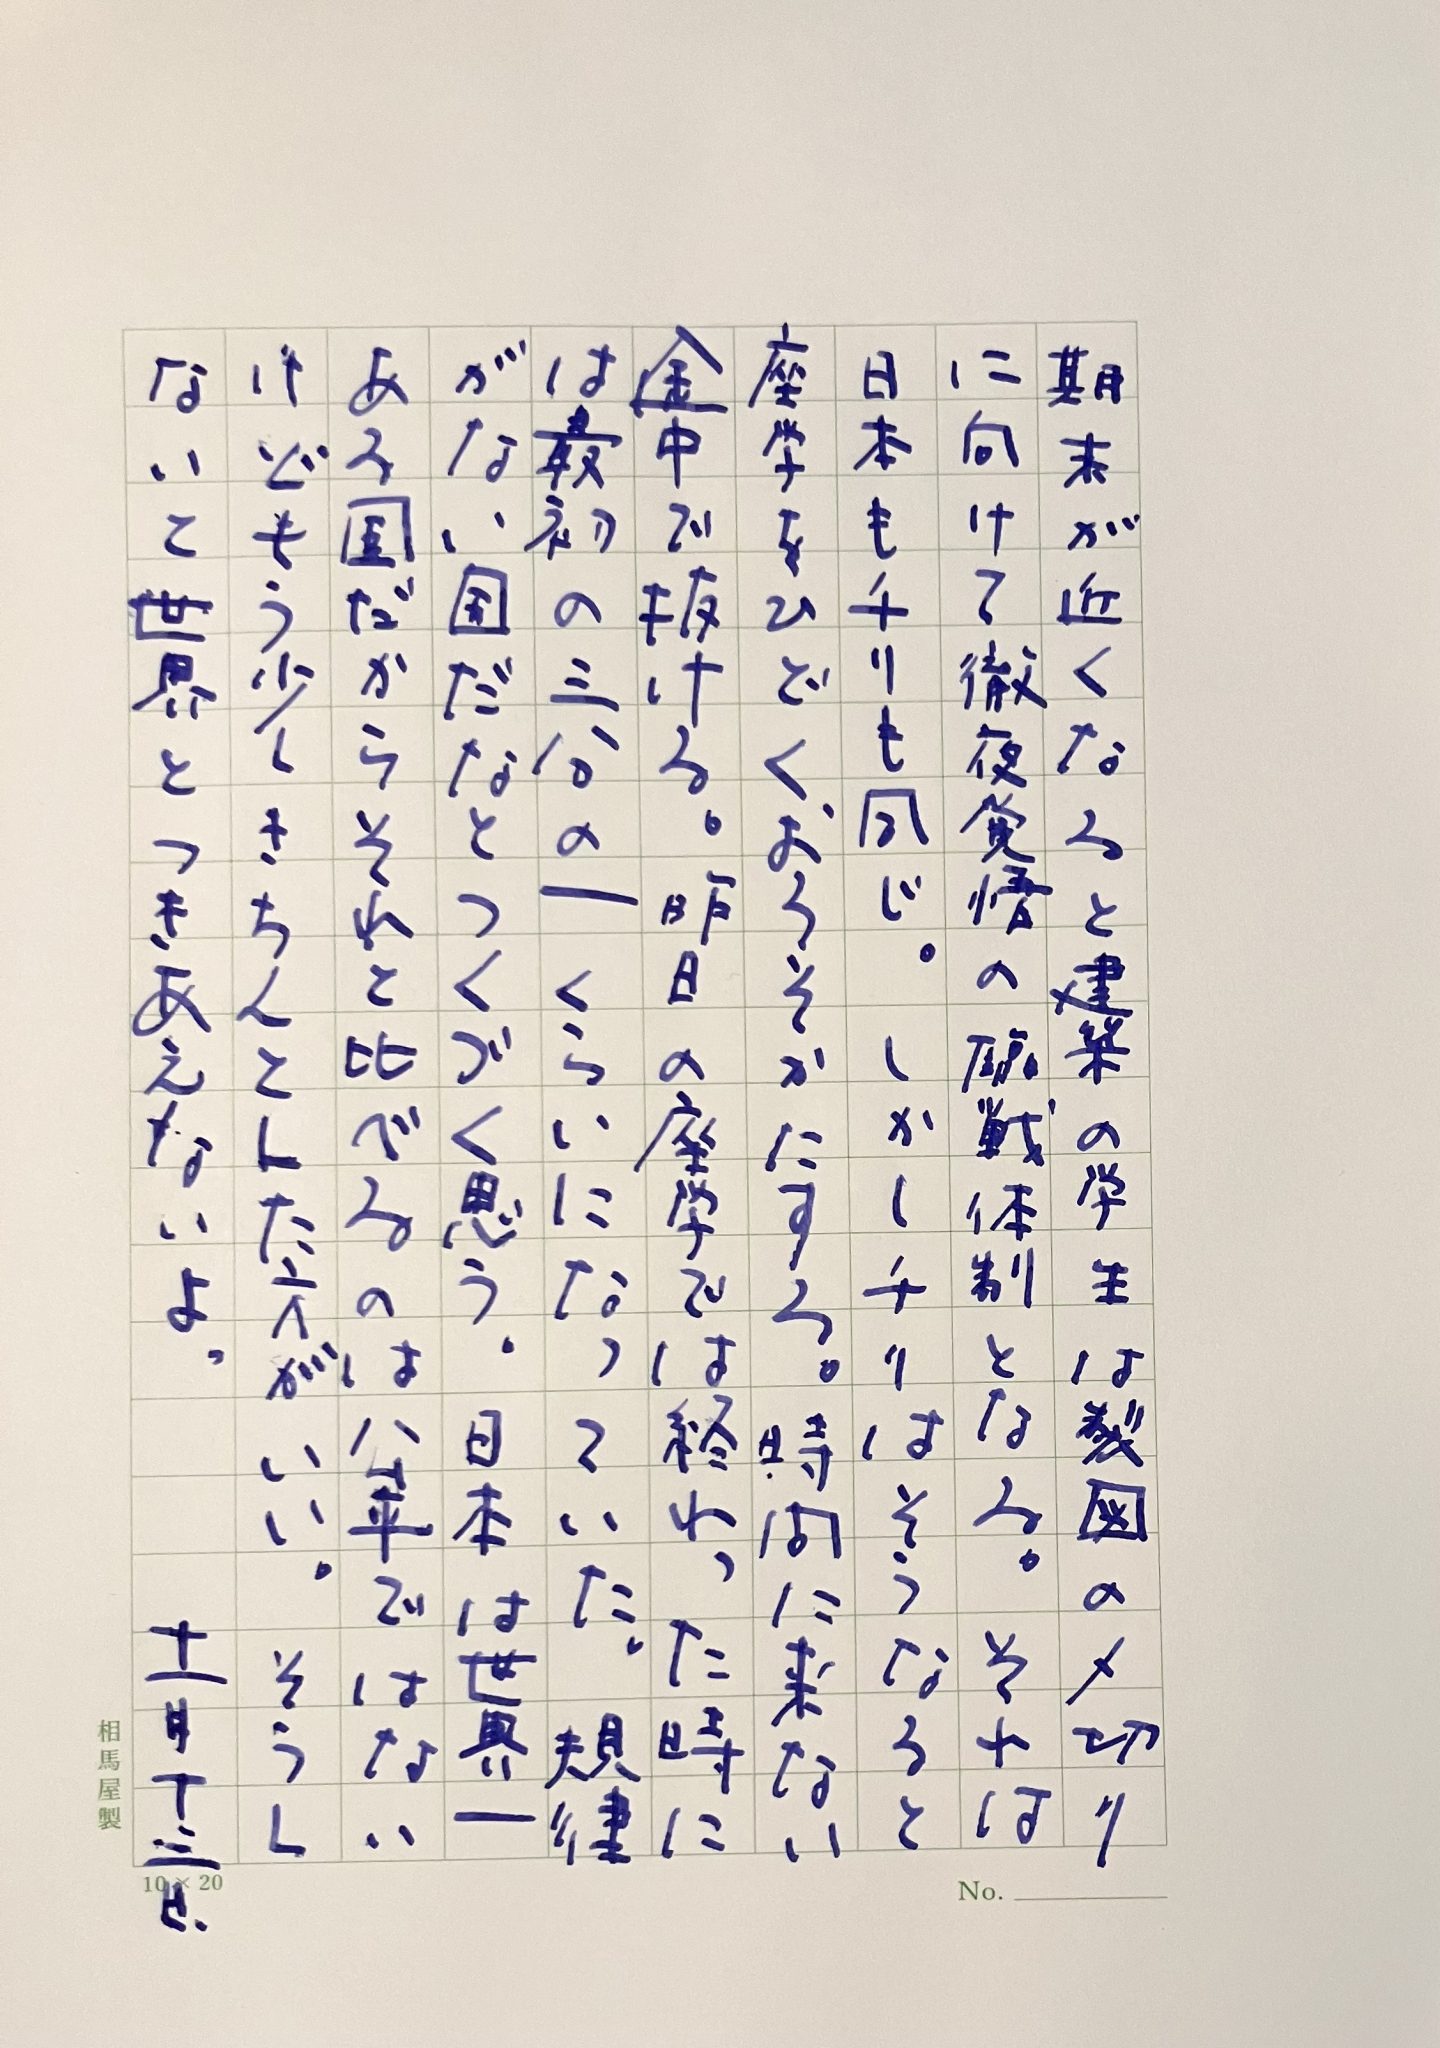 期末が近くなると建築の学生は製図の〆切り
に向けて徹夜覚悟の臨戦体制となる。それは
日本もチリも同じ。しかしチリはそうなると
座学をひどくおろそかにする。時間に来ない
途中で抜ける。昨日の座学では終わった時に
は最初の三分の一くらいになっていた。規律
がない国だなとつくづく思う。日本は世界一
ある国だからそれと比べるのは公平ではない
けどもう少しきちんとした方がいい。そうし
ないと世界とつきあえないよ。
十一月十三日.
相馬屋製
10×20
No.